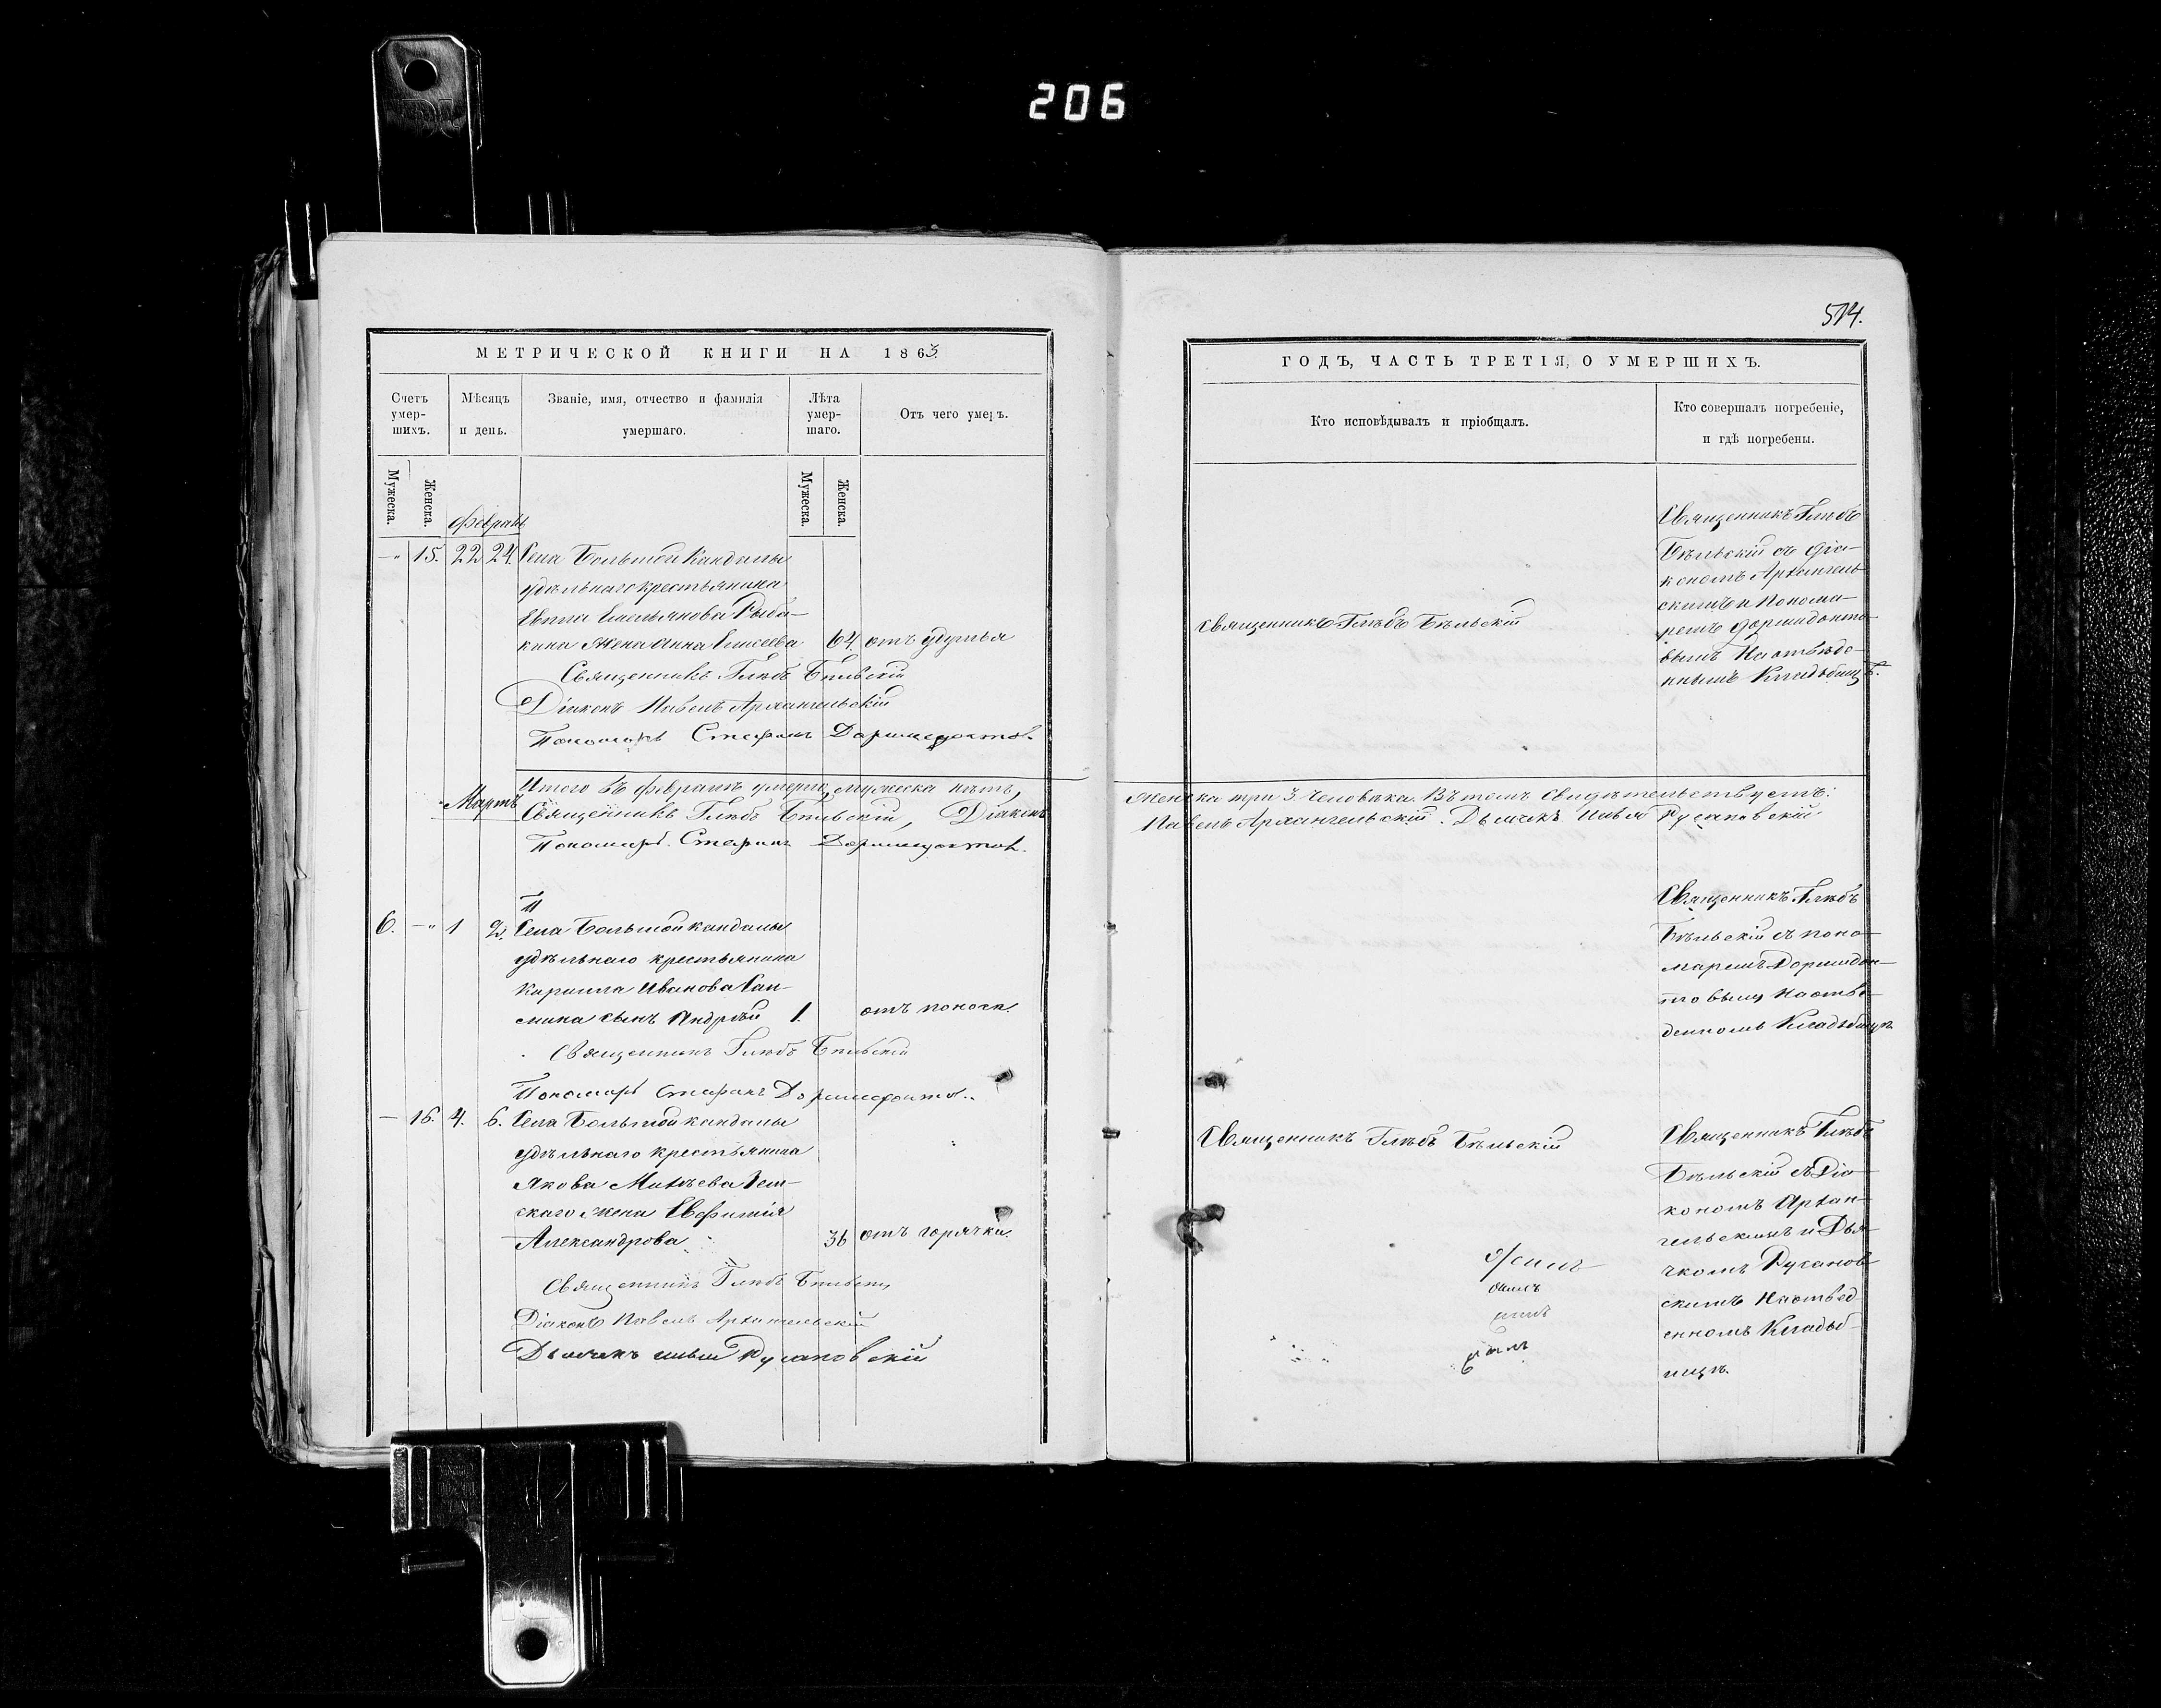 206
514.
МЕТРИЧЕСКОЙ КНИГИ НА 1863
Счетъ умер-шихъ.
Мѣсяцъ и день.
Званіе, имя, отчество и фамилія умершаго.
Лѣта умер-шаго.
Отъ чего умеръ.
Мужеска.
Женска.
Мужеска.
Женска.
Февраль
15. 22 24. Села Большой Кандалы
удѣльнаго крестьянина
Емельянова Рыба-
кина жена Анна Елисеева 64. отъ удушья
Священникъ Глѣбъ Бѣльскій
Діаконъ Павелъ Архангельскій
Пономарь Стефанъ Доримедонтов
Мартъ
Итого въ февралѣ умерло мужеска пять,
Священникъ Глѣбъ Бѣльскій, Діаконъ
Пономарь Стефанъ Доримедонтов.
6. 1 2. Села Большой кандалы
удѣльнаго крестьянина
Кирилла Иванова
сынъ Андрей 1. отъ поноса.
Священникъ Глѣбъ Бѣльскій
Пономарь Стефанъ Доримедонтов..
16. 4. 6. Села Большой кандалы
удѣльнаго крестьянина
Якова Михѣева
скаго жена Евфимія
Александрова 36 отъ горячки.
Священникъ Глѣбъ Бѣльскій
Діаконъ Павелъ Архангельскій
Дьячекъ Илья Русановскій
ГОДЪ, ЧАСТЬ ТРЕТІЯ, О УМЕРШИХЪ.
Кто исповѣдывалъ и пріобщалъ.
Кто совершалъ погребеніе,
и гдѣ погребены.
Священникъ Глѣбъ Бѣльскій
Священникъ Глѣбъ
Бѣльскій съ діа-
кономъ Архангель-
скимъ и понома-
ремъ Дормидонто-
вымъ На отведе-
нномъ Кладбищѣ.
женска три 3. человѣка. Въ томъ свидѣтельствуемъ:
Павелъ Архангельскій. Дьячекъ Илья Русановскій
Священникъ Глѣбъ
Бѣльскій съ поно-
маремъ Дормидон-
товымъ На отве-
денномъ Кладбищѣ
Священникъ Глѣбъ Бѣльскій
Священникъ Глѣбъ
Бѣльскій съ Діа-
кономъ Архан-
гельскимъ и Дья-
чкомъ Русанов-
скимъ На отвед-
енномъ Кладб-
ищѣ.